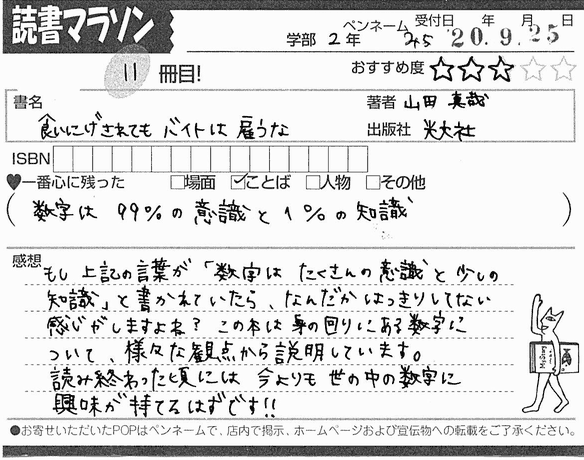 読書マラソン
ペンネーム 受付日 年 月 日
学部 2年 みち 20.9.25
11 冊目!
おすすめ度 ★★★☆☆
書名
著者 山田 真哉
食いにげされても バイトは 雇うな
出版社 光文社
ISBN
♥一番心に残った □場面 ☑ことば □人物 □その他
(数字は 99%の意識と1%の知識)
感想
もし上記の言葉が「数字は たくさんの意識と少しの
知識」と書かれていたら、なんだかはっきりしてない
感じがしますよね? この本は身の回りにある数字に
ついて、様々な観点から説明しています。
読み終わった頃には 今よりも 世の中の数字に
興味が 持てるはずです!!
●お寄せいただいたPOPはペンネームで、店内で掲示、ホームページおよび宣伝物への転載をご了承ください。